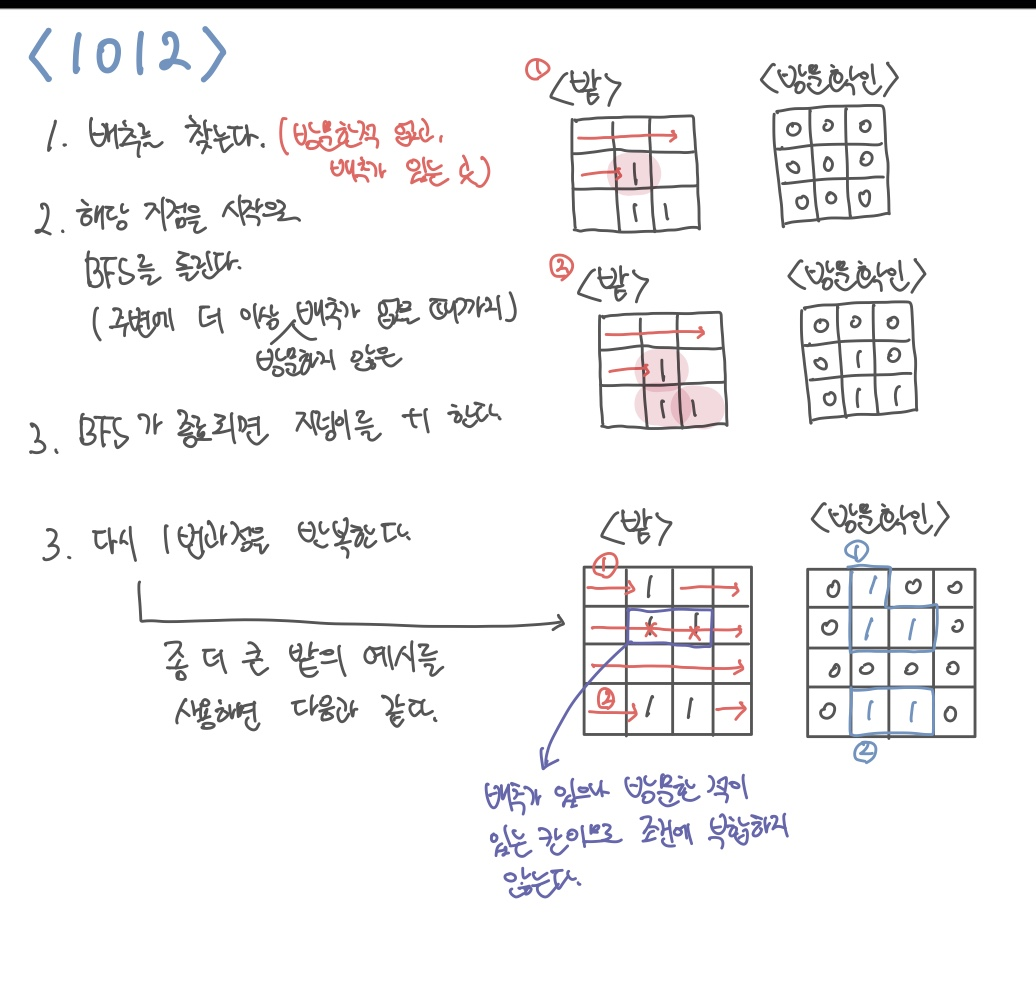 <1012>
1. 배추를 찾는다. (방문한적 없고,
배추가 있는 곳)
2. 해당 지점을 시작으로
BFS를 돌린다.
(주변에 더 이상 배추가 없을 때까지)
방문하지 않은
3. BFS가 종료되면 지렁이를 +1 한다.
3. 다시 1번과정을 반복한다.
좀 더 큰 밭의 예시를
사용하면 다음과 같다.
① <밭>
1
1 1
<방문확인>
0 0 0
0 0 0
0 0 0
② <밭>
1
1 1
<방문확인>
0 0 0
0 1 0
0 1 1
<밭>
① 1
1 1
② 1 1
<방문확인>
①
0 1 0 0
0 1 1 0
0 0 0 0
0 1 1 0
②
배추가 있으나 방문한 적이
있는 칸이므로 조건에 부합하지
않는다.